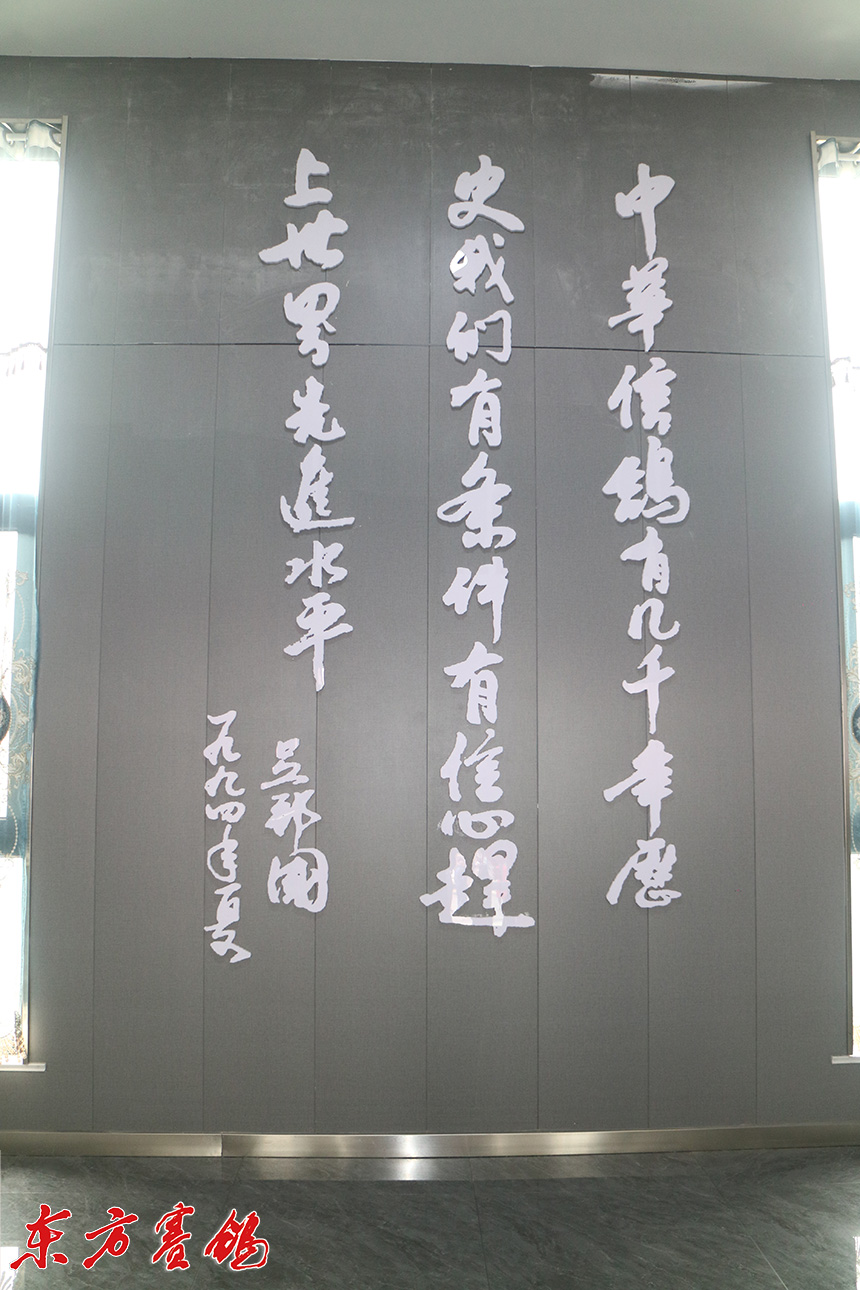 中华信鸽有几千年歷
史我们有条件有信心趕
上世界先進水平
吴邦国
一九九四年夏
东方赛鸽